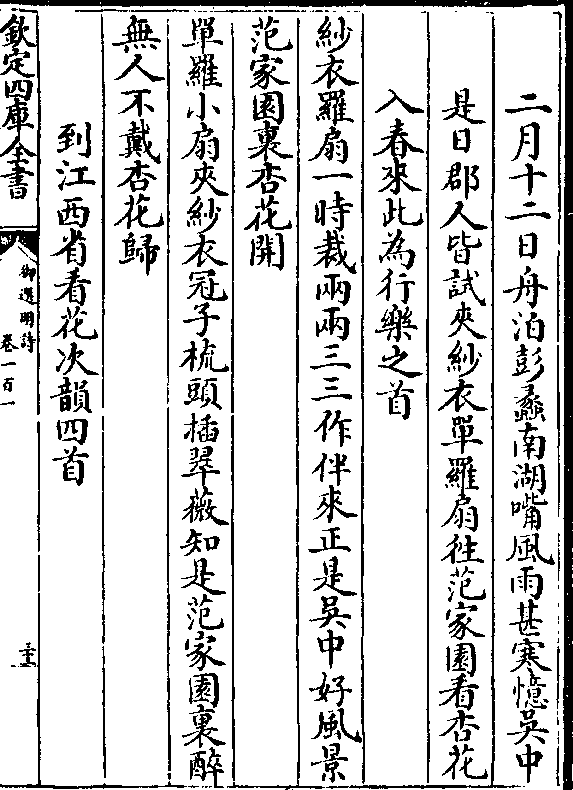 二月十二日舟泊彭蠡南湖嘴風雨甚寒憶吳中
是日郡人皆試夾紗衣單羅扇徃范家園看杏花
入春來此為行樂之首
紗衣羅扇一時裁兩兩三三作伴來正是吳中好風景
范家園裏杏花開
單羅小扇夾紗衣冠子梳頭插翠薇知是范家園裏醉
無人不戴杏花歸
到江西省看花次韻四首
欽定四庫全書
御選明詩
卷一百一